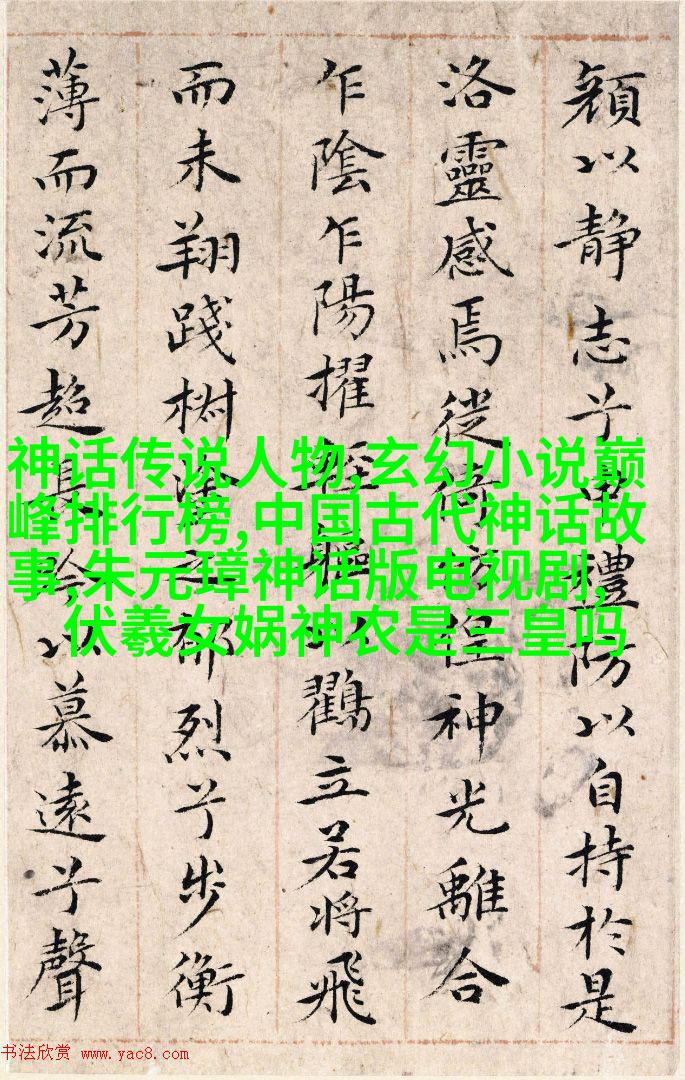 顔以静志兮申禮防以自持於是
洛靈感焉徙倚彷徨神光離合
乍陰乍陽擢輕軀以鶴立若將飛
而未翔踐椒塗之郁烈兮步衡
薄而流芳超長吟以慕遠兮聲
神话传说人物,玄幻小说巅
峰排行榜,中国古代神话故
事,朱元璋神话版电视剧,
伏羲女娲神农是三皇吗
书法欣赏 www.yac8.com